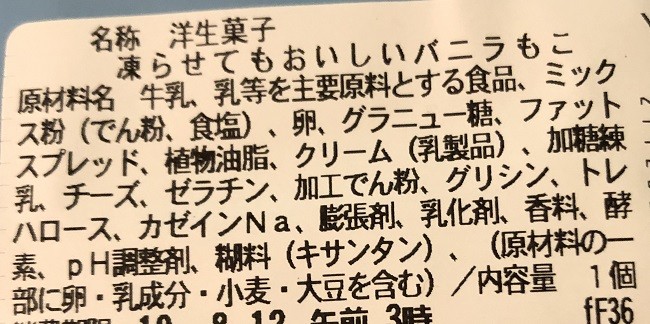 名称　洋生菓子
凍らせてもおいしいバニラもこ
原材料名　牛乳、乳等を主要原料とする食品、ミック
ス粉（でん粉、食塩）、卵、グラニュー糖、ファット
スプレッド、植物油脂、クリーム（乳製品）、加糖練
乳、チーズ、ゼラチン、加工でん粉、グリシン、トレ
ハロース、カゼインＮａ、膨張剤、乳化剤、香料、酵
素、ｐＨ調整剤、糊料（キサンタン）、（原材料の一
部に卵・乳成分・小麦・大豆を含む）／内容量　１個
消費期限　10. 8.12 午前 3時　fF36